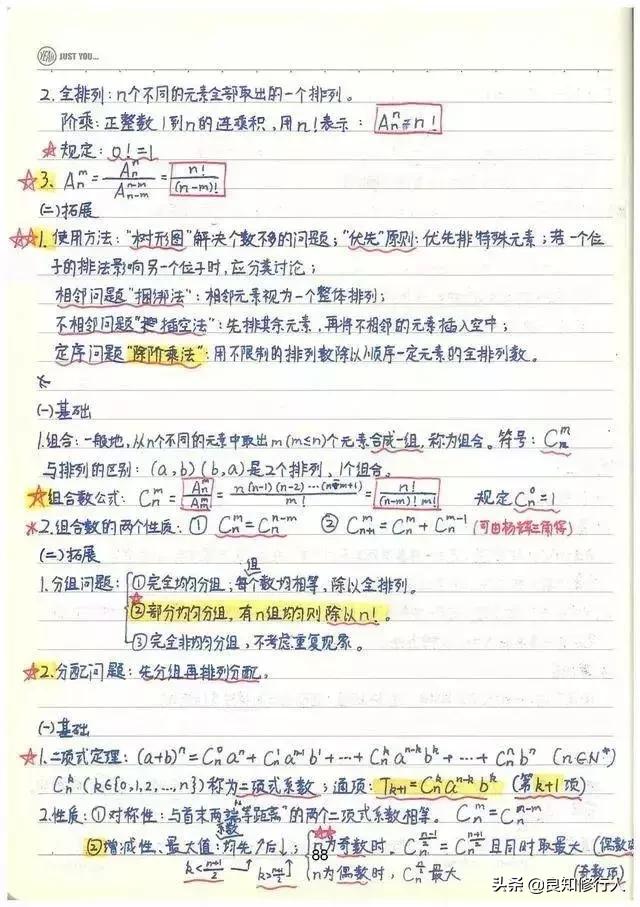 YEAH JUST YOU...
2. 全排列：n个不同的元素全部取出的一个排列。
阶乘：正整数1到n的连乘积，用n!表示：Aₙⁿ=n!
☆规定：0!=1
☆3. Aₙᵐ = Aₙⁿ/Aₙ₋ₘⁿ⁻ᵐ = n!/(n-m)!
(二)拓展
☆☆1. 使用方法："树形图"解决个数不多的问题；"优先"原则：优先排特殊元素；若一个位
子的排法影响另一个位子时，应分类讨论；
相邻问题"捆绑法"：相邻元素视为一个整体排列；
不相邻问题"插空法"：先排其余元素，再将不相邻的元素插入空中；
定序问题"除阶乘法"：用不限制的排列数除以顺序一定元素的全排列数。
(一)基础
1.组合：一般地，从n个不同的元素中取出m(m≤n)个元素合成一组，称为组合。符号：Cₙᵐ
与排列的区别：(a,b)(b,a)是2个排列，1个组合。
☆组合数公式：Cₙᵐ = Aₙᵐ/Aₘᵐ = n(n-1)(n-2)…(n-m+1)/m! = n!/(n-m)!m! 规定Cₙ⁰=1
*2.组合数的两个性质：① Cₙᵐ=Cₙⁿ⁻ᵐ ② Cₙ₊₁ᵐ=Cₙᵐ+Cₙᵐ⁻¹ (可由杨辉三角得)
(二)拓展
1.分组问题：①完全均匀分组，每个组数均相等，除以全排列。
☆②部分均匀分组，有n组均匀则除以n!。
③完全非均匀分组，不考虑重复现象。
☆2.分配问题：先分组再排列分配。
(一)基础
☆1.二项式定理：(a+b)ⁿ=Cₙ⁰aⁿ+Cₙ¹aⁿ⁻¹b¹+…+Cₙᵏaⁿ⁻ᵏbᵏ+…+Cₙⁿbⁿ (n∈N*)
Cₙᵏ(k∈{0,1,2,…,n})称为二项式系数；通项：Tₖ₊₁=Cₙᵏaⁿ⁻ᵏbᵏ (第k+1项)
2.性质：①对称性：与首末两端"等距离"的两个二项式系数相等。Cₙᵐ=Cₙⁿ⁻ᵐ
②增减性、最大值：系数均先↑后↓； ☆☆n为奇数时，Cₙ^((n-1)/2)=Cₙ^((n+1)/2)且同时取最大(偶数项
k<(n+1)/2 ↗ k>(n+1)/2 n为偶数时，Cₙ^(n/2)最大 (奇数项)
88
头条 @良知修行人